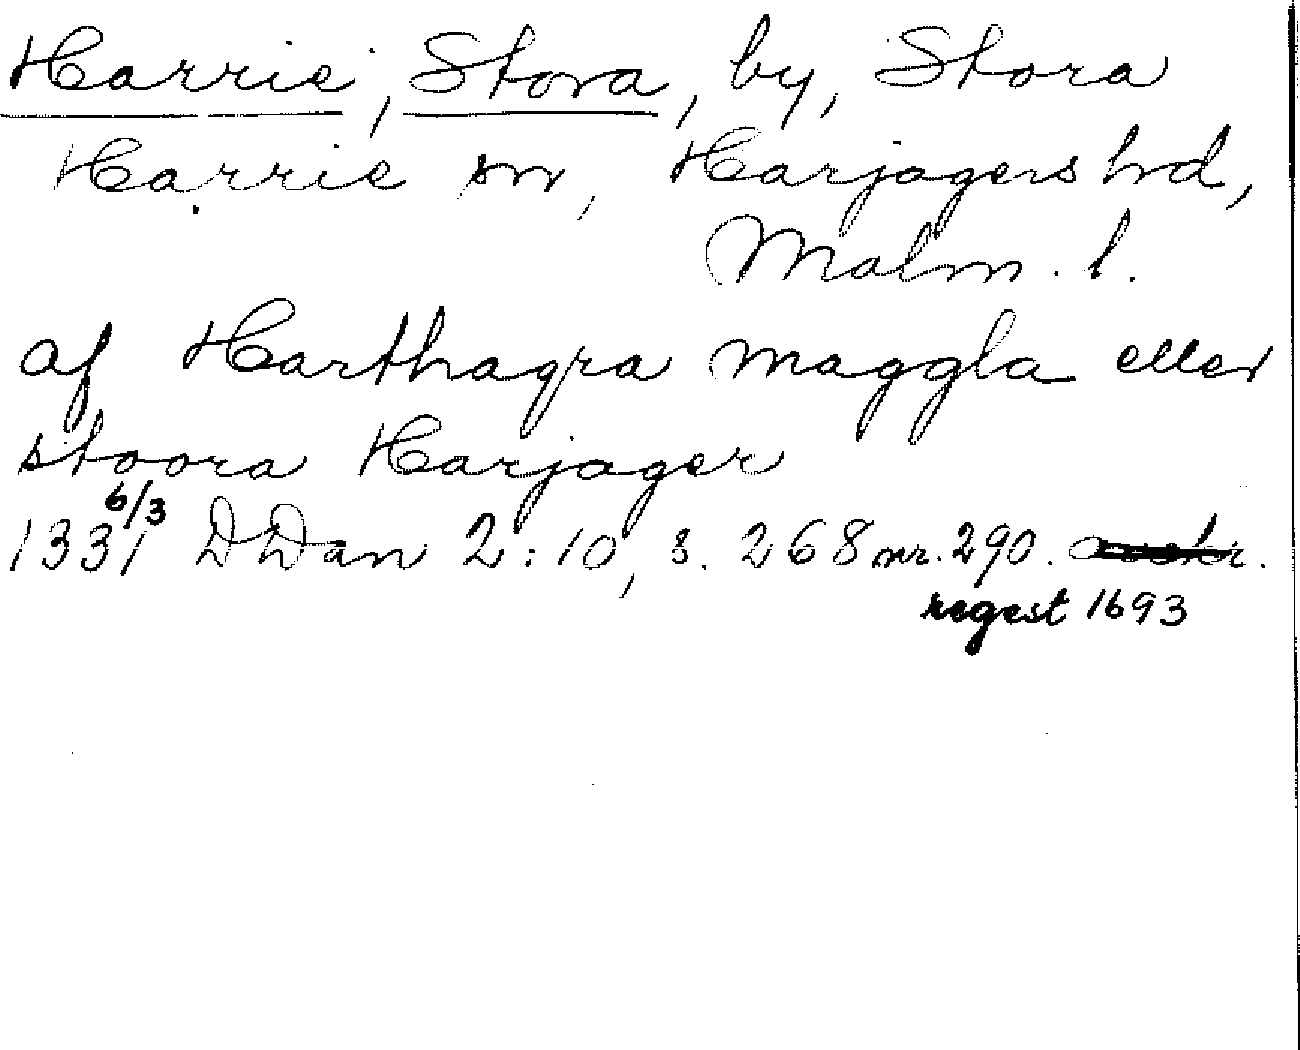 Harrie, Stora, by, Stora
Harrie sn, Harjagers hd,
Malm. l.
af Harthagra maggla eller
stoora Harjager
6/3
1331 DDan 2:10, s. 268 nr. 290.
regest 1693